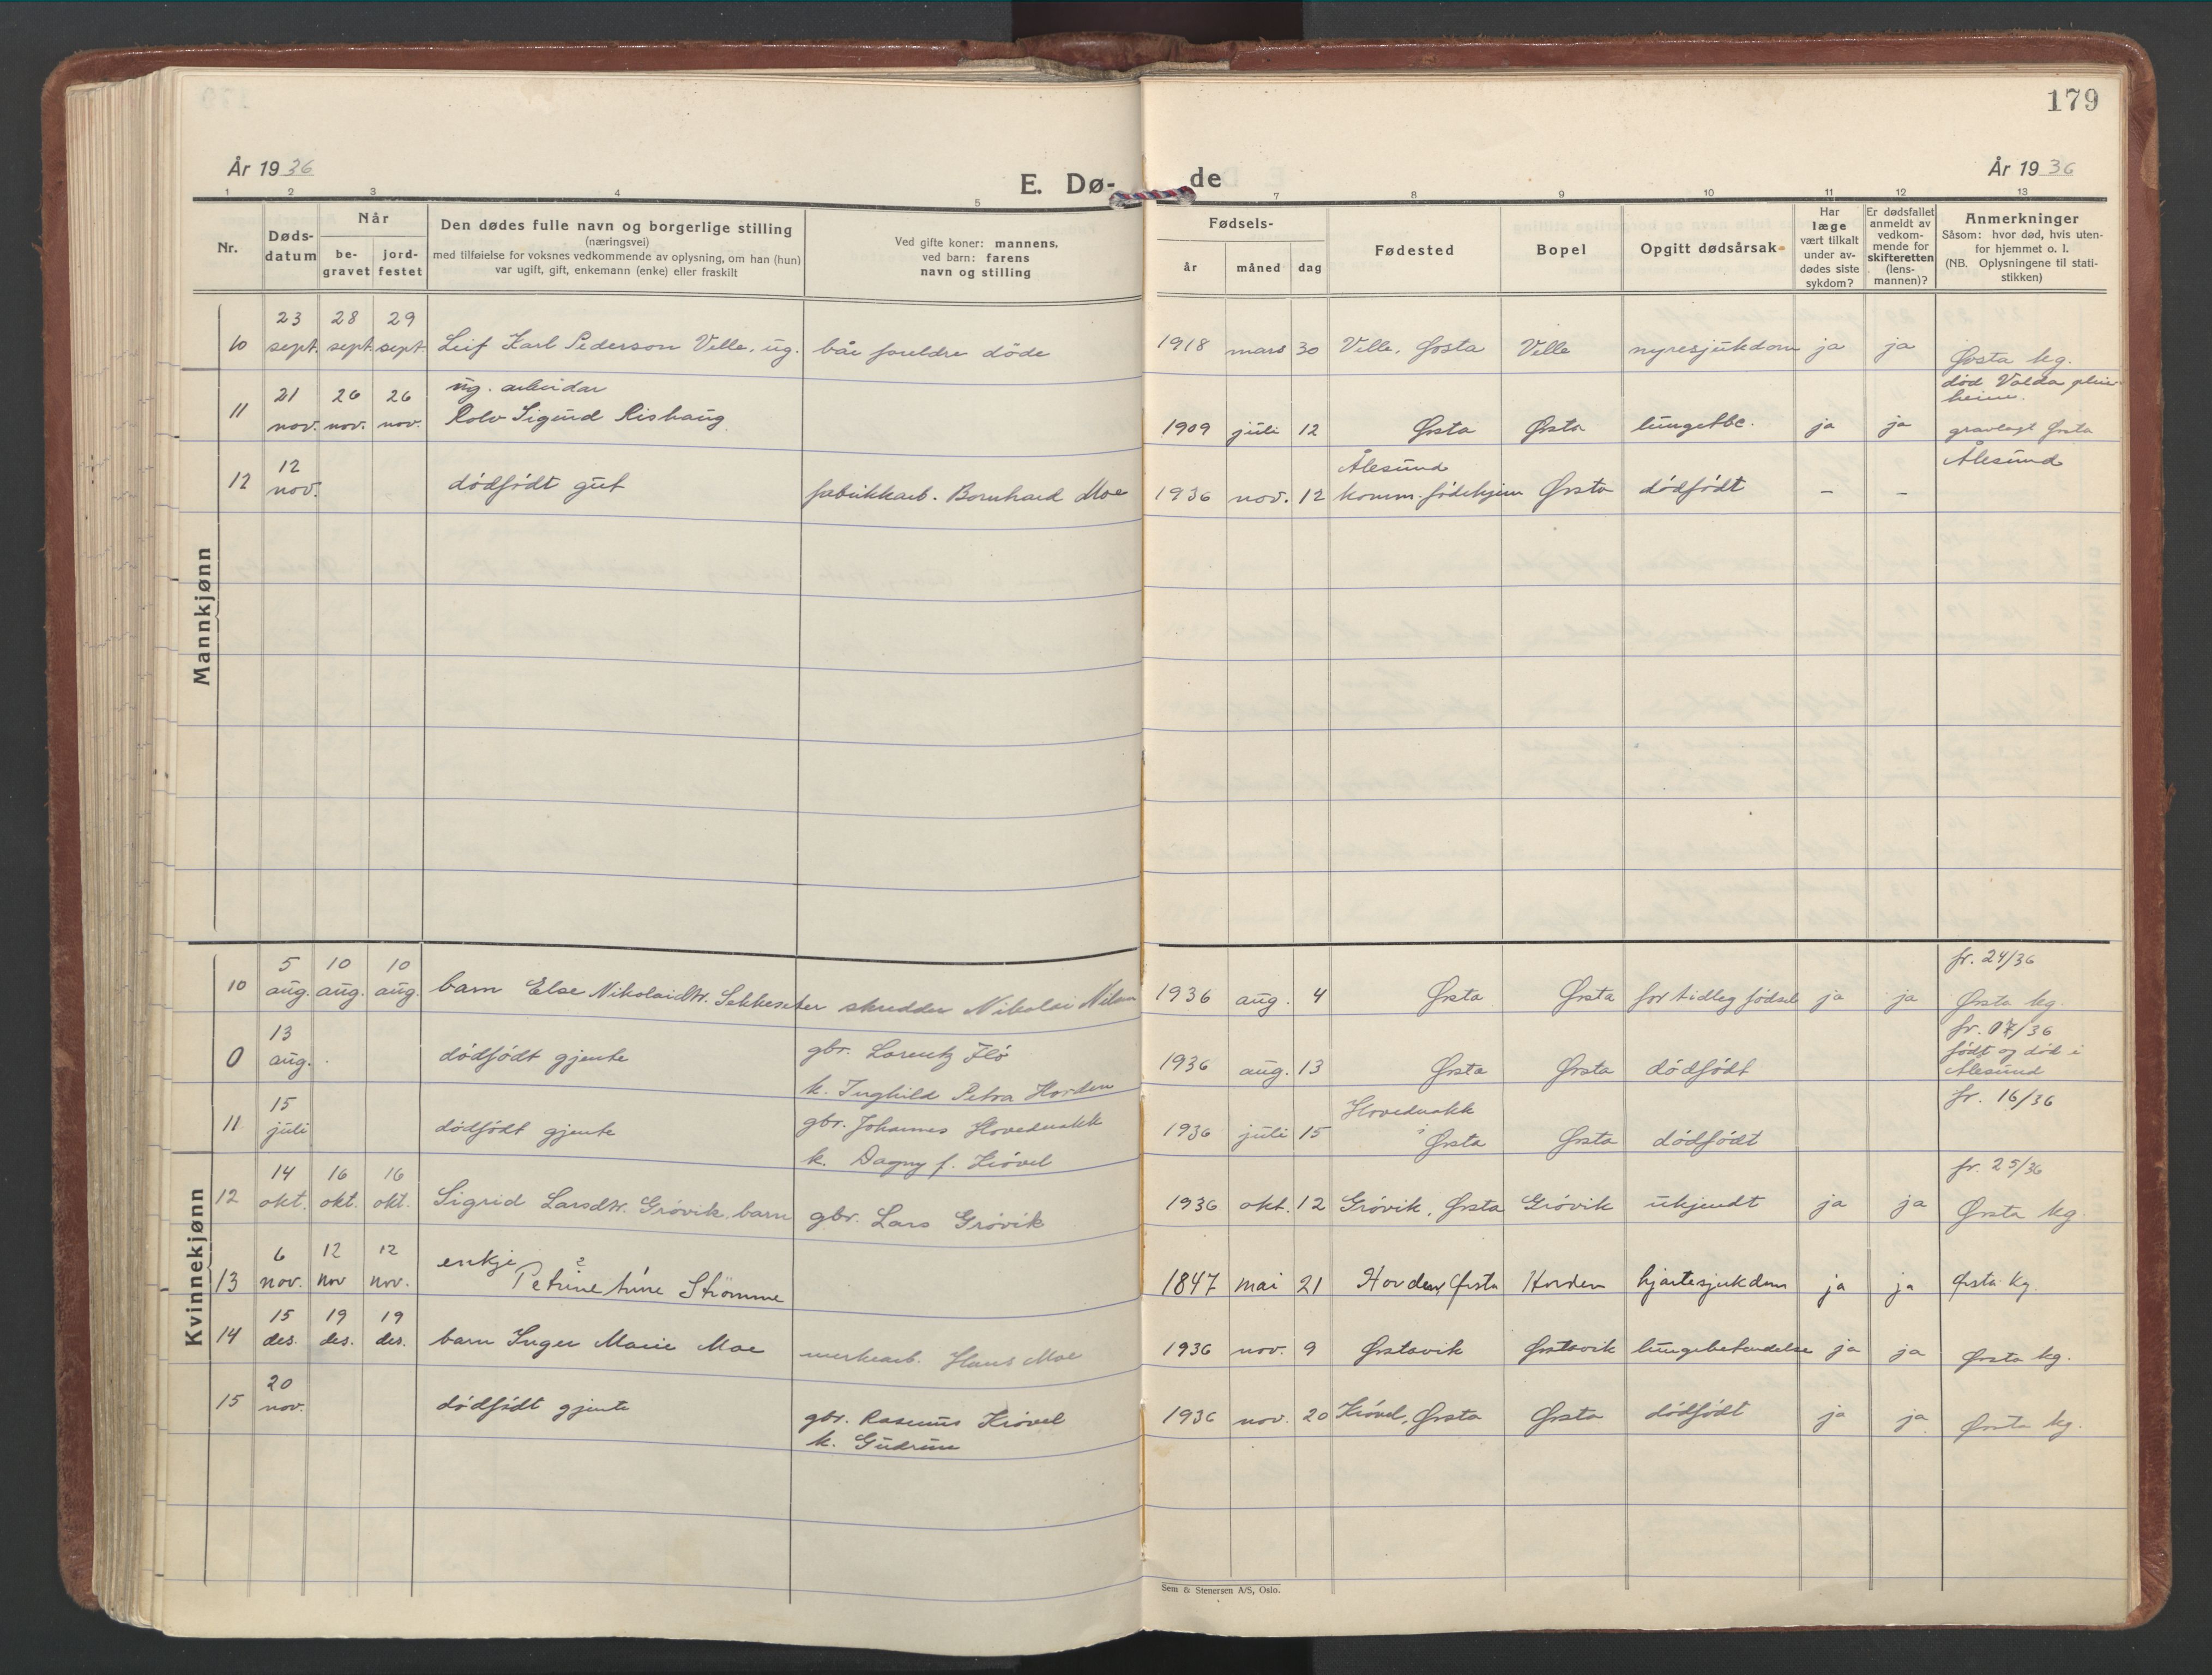 179
År 1936
E. Dø-
de
År 1936
1 2 3 4 5 7 8 9 10 11 12 13
Nr.
Døds-
datum
Når
be-
gravet
jord-
festet
Den dødes fulle navn og borgerlige stilling
(næringsvei)
med tilføielse for voksnes vedkommende av oplysning, om han (hun)
var ugift, gift, enkemann (enke) eller fraskilt
Ved gifte koner: mannens,
ved barn: farens
navn og stilling
Fødsels-
år måned dag
Fødested
Bopel
Opgitt dødsårsak
Har
læge
vært tilkalt
under av-
dødes siste
sykdom?
Er dødsfallet
anmeldt av
vedkom-
mende for
skifteretten
(lens-
mannen)?
Anmerkninger
Såsom: hvor død, hvis uten-
for hjemmet o. l.
(NB. Oplysningene til stati-
stikken)
Mannkjønn
23 28 29
10 sept. sept. sept. Leif Karl Pederson Velle, ug. båe foreldre døde 1918 mars 30 Velle, Ørsta Velle nyresjukdom ja ja Ørsta kg.
ug. arbeidar død Volda pleie-
heim.
21 26 26
11 nov. nov. nov. Rolv Sigurd Rishaug 1909 juli 12 Ørsta Ørsta lungetbc. ja ja gravlagt Ørsta
12 Ålesund Ålesund
12 nov. dødfødt gut fabrikkarb. Bernhard Moe 1936 nov. 12 komm. fødehjem Ørsta dødfødt – –
Kvinnekjønn
5 10 10 fr. 24/36
10 aug. aug. aug. barn Else Nikolaidtr. Sekkeseter skredder Nikolai 1936 aug. 4 Ørsta Ørsta for tidleg fødsel ja ja Ørsta kg.
13 fr. 07/36
0 aug. dødfødt gjente gbr. Lorentz Flø 1936 aug. 13 Ørsta Ørsta dødfødt født og død i
Ålesund
k. Inghild Petra Horden
15 Hovednakk fr. 16/36
11 juli dødfødt gjente gbr. Johannes Hovednakk 1936 juli 15 i Ørsta Ørsta dødfødt
k. Dagny f. Krøvel
14 16 16 fr. 25/36
12 okt. okt. okt. Sigrid Larsdtr. Grøvik, barn gbr. Lars Grøvik 1936 okt. 12 Grøvik, Ørsta Grøvik ukjendt ja ja Ørsta kg.
6 12 12 enkje ?
13 nov. nov nov. Petrine Strømme 1847 mai 21 Horden, Ørsta Horden hjartesjukdom ja ja Ørsta kg.
15 19 19
14 des. des. des. barn Inger Marie Moe Hans Moe 1936 nov. 9 Ørstavik Ørstavik lungebetendelse ja ja Ørsta kg.
20
15 nov. dødfødt gjente gbr. Rasmus Krøvel 1936 nov. 20 Krøvel, Ørsta Ørsta dødfødt ja ja Ørsta kg.
k. Gudrun
Sem & Stenersen A/S, Oslo.